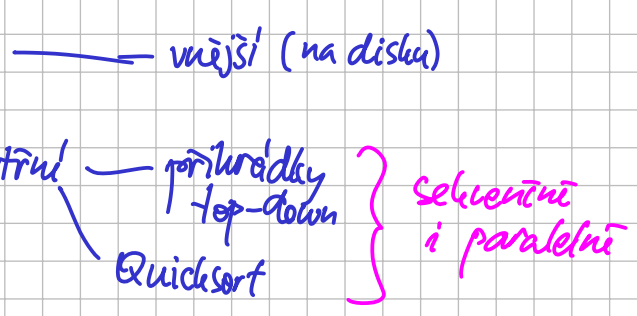 vnější (na disku)
třní přihrádky
top-down
Quicksort
sekvenčně
i paralelně